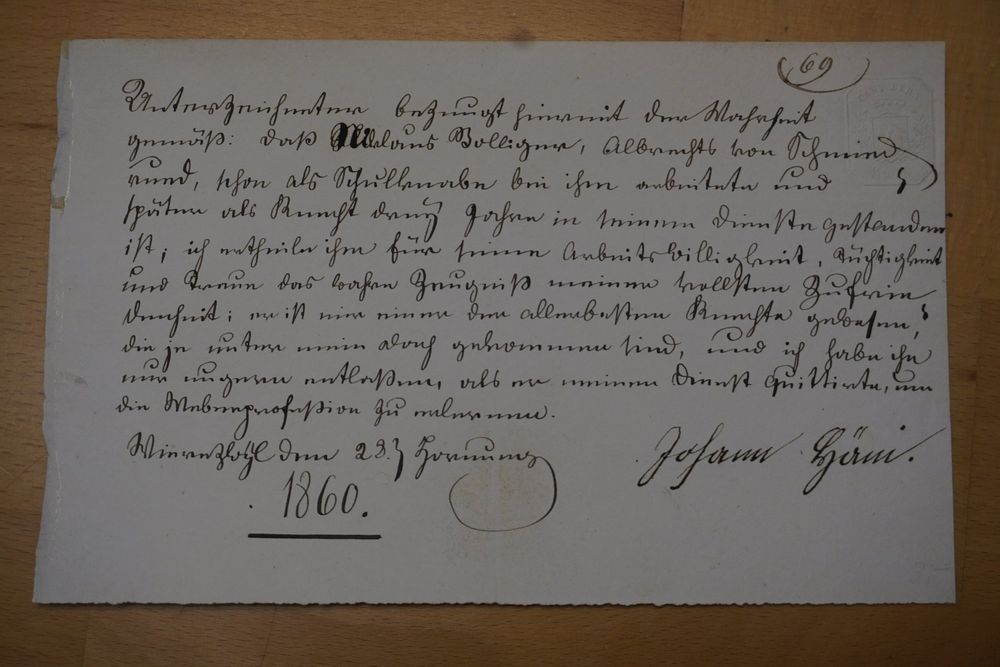 69
Unterzeichneter bezeugt hiermit der Wahrheit
gemäß: daß Niklaus Bolliger, Albrechts von Schmied
rued, schon als Schulknabe bei ihm arbeitete und
später als Knecht dreÿ Jahre in seinem Dienste gestanden
ist; ich ertheile ihm für seine Arbeitswilligkeit, Tüchtigkeit
und Treue das wahre Zeugniß meiner vollsten Zufrie
denheit; er ist mir einer der allerbesten Knechte gewesen,
die je unter mein Dach gekommen sind, und ich habe ihn
nur ungern entlaßen, als er meinen Dienst quittirte, um
die Weberprofeßion zu erlernen.
den 28. Hornung
1860.
Johann Häni.